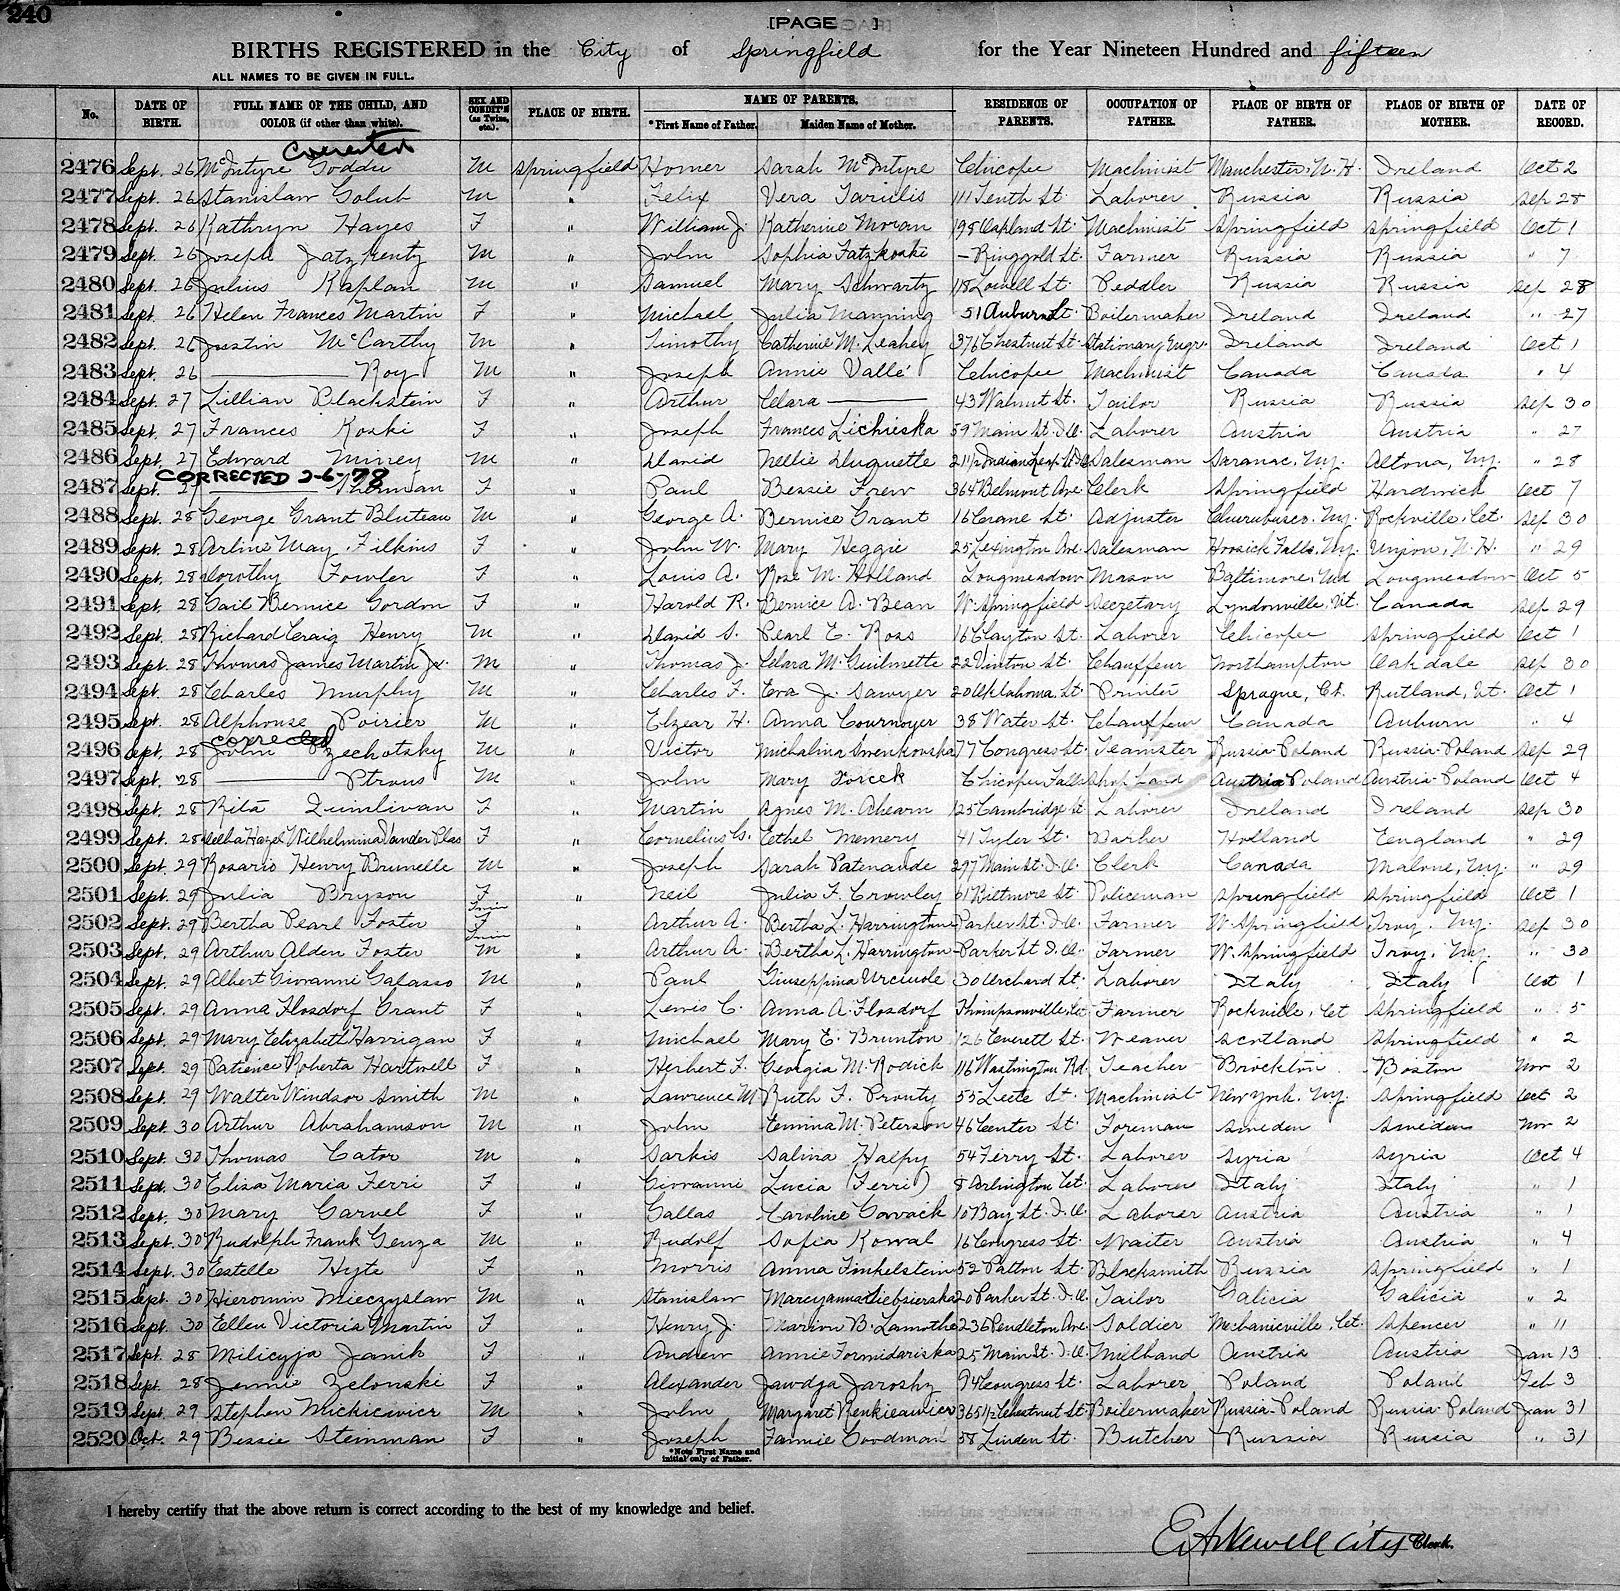 240
[PAGE ]
BIRTHS REGISTERED in the City of Springfield for the Year Nineteen Hundred and fifteen
ALL NAMES TO BE GIVEN IN FULL.
No. DATE OF BIRTH. FULL NAME OF THE CHILD, AND COLOR (if other than white). SEX AND CONDIT'N (as Twins, etc.). PLACE OF BIRTH. NAME OF PARENTS. *First Name of Father. Maiden Name of Mother. RESIDENCE OF PARENTS. OCCUPATION OF FATHER. PLACE OF BIRTH OF FATHER. PLACE OF BIRTH OF MOTHER. DATE OF RECORD.
Corrected
2476 Sept. 26 McIntyre Goddu M Springfield Homer Sarah McIntyre Chicopee Machinist Manchester, N.H. Ireland Oct 2
2477 Sept. 26 Stanislaw Golub M " Felix Vera 111 Tenth St. Laborer Russia Russia Sep 28
2478 Sept. 26 Kathryn Hayes F " William J. Katherine Moran 198 Oakland St. Machinist Springfield Springfield Oct 1
2479 Sept. 26 Joseph M " John Sophia – Ringgold St. Farmer Russia Russia " 7
2480 Sept. 26 Julius Kaplan M " Samuel Mary Schwartz 118 Lowell St. Peddler Russia Russia Sep 28
2481 Sept. 26 Helen Frances Martin F " Michael Julia Manning 51 Auburn St. Boilermaker Ireland Ireland " 27
2482 Sept. 26 Justin McCarthy M " Timothy Catherine M. Leahey 376 Chestnut St. Stationary Engr. Ireland Ireland Oct 1
2483 Sept. 26 — Roy M " Joseph Annie Vallé Chicopee Machinist Canada Canada " 4
2484 Sept. 27 Lillian Blackstein F " Arthur Clara — 43 Walnut St. Tailor Russia Russia Sep 30
2485 Sept. 27 Frances Koski F " Joseph Frances Lichieska 59 Main St. I.O. Laborer Austria Austria " 27
2486 Sept. 27 Edward M " David Nellie Duguette Salesman Saranac, N.Y. Altona, N.Y. " 28
CORRECTED 2-6-78
2487 Sept. 27 — Thurman F " Paul Bessie Frew 364 Belmont Ave. Clerk Springfield Hardwick Oct 7
2488 Sept. 28 George Grant Bluteau M " George A. Bernice Grant 16 Crane St. Adjuster Churubusco, N.Y. Rockville, Ct. Sep 30
2489 Sept. 28 Arline May Filkins F " John W. Mary Heggie 25 Lexington Ave. Salesman Hoosick Falls, N.Y. Union, N.H. " 29
2490 Sept. 28 Dorothy Fowler F " Louis A. Rose M. Holland Longmeadow Mason Baltimore, Md Longmeadow Oct 5
2491 Sept. 28 Gail Bernice Gordon F " Harold R. Bernice A. Bean W. Springfield Secretary Lyndonville, Vt. Canada Sep 29
2492 Sept. 28 Richard Craig Henry M " David S. Pearl E. Ross 16 Clayton St. Laborer Chicopee Springfield Oct 1
2493 Sept. 28 Thomas James Martin Jr. M " Thomas J. Clara M. Guilmette 22 Vinton St. Chauffeur Northampton Oakdale Sep 30
2494 Sept. 28 Charles Murphy M " Charles F. Eva J. Sawyer 20 Oklahoma St. Printer Sprague, Ct. Rutland, Vt. Oct 1
2495 Sept. 28 Alphonse Poirier M " Elzear H. Anna Cournoyer 38 Water St. Chauffeur Canada Auburn " 4
corrected
2496 Sept. 28 John Pzechotsky M " Victor Michalina Swenkowska 77 Congress St. Teamster Russia-Poland Russia-Poland Sep 29
2497 Sept. 28 — Ptrous M " John Mary Chicopee Falls Shop Hand Austria Poland Austria-Poland Oct 4
2498 Sept. 28 Rita Quinlivan F " Martin Agnes M. Ahearn 125 Cambridge St Laborer Ireland Ireland Sep 30
2499 Sept. 28 Hazel Wilhelmina Vander Plas F " Cornelius G. Ethel Memery 41 Tyler St. Barber Holland England " 29
2500 Sept. 29 Rosario Henry Brunelle M " Joseph Sarah Patenaude 297 Main St. I.O. Clerk Canada Malone, N.Y. " 29
2501 Sept. 29 Julia Bryson F " Neil Julia F. Crowley 61 Biltmore St Policeman Springfield Springfield Oct 1
2502 Sept. 29 Bertha Pearl Foster Twin F " Arthur A. Bertha L. Harrington Parker St. I.O. Farmer W. Springfield Troy, N.Y. Sep 30
2503 Sept. 29 Arthur Alden Foster Twin M " Arthur A. Bertha L. Harrington Parker St. I.O. Farmer W. Springfield Troy, N.Y. " 30
2504 Sept. 29 Albert Giovanni Gafasso M " Paul Giuseppina Urciuole 30 Orchard St. Laborer Italy Italy Oct 1
2505 Sept. 29 Anna Flosdorf Grant F " Lewis C. Anna A. Flosdorf Thompsonville, Ct Farmer Rockville, Ct Springfield " 5
2506 Sept. 29 Mary Elizabeth Harrigan F " Michael Mary E. Brunton 126 Everett St. Weaver Scotland Springfield " 2
2507 Sept. 29 Patience Roberta Hartwell F " Herbert F. Georgia M. Rodick 116 Washington Rd. Teacher Brockton Boston Nov 2
2508 Sept. 29 Walter Windsor Smith M " Lawrence M Ruth F. Prouty 55 Leete St. Machinist New York, N.Y. Springfield Oct 2
2509 Sept. 30 Arthur Abrahamson M " John Emina M. Peterson 46 Center St. Foreman Sweden Sweden Nov 2
2510 Sept. 30 Thomas Cator M " Sarkis Salina Halpy 54 Ferry St. Laborer Syria Syria Oct 4
2511 Sept. 30 Eliza Maria Ferri F " Giovanni Lucia (Ferri) 8 Arlington Ct. Laborer Italy Italy " 1
2512 Sept. 30 Mary Garvel F " Gallas Caroline Gowack 10 Bay St. I.O. Laborer Austria Austria " 1
2513 Sept. 30 Rudolph Frank Genza M " Rudolf Sofia Kowal 16 Congress St. Waiter Austria Austria " 4
2514 Sept. 30 Estelle Hyte F " Morris Anna Finkelstein 52 Patton St. Blacksmith Russia Springfield " 1
2515 Sept. 30 Hieronim Mieczyslaw M " Stanislaw Marcyanna Siebsierska 20 Parker St. I.O. Tailor Galicia Galicia " 2
2516 Sept. 30 Ellen Victoria Martin F " Henry J. Marion B. Lamothe 236 Pendleton Ave. Soldier Mechanicville, Ct. Spencer " 11
2517 Sept. 28 Milicyja Janik F " Andrew Annie Formidariska 25 Main St. I.O. Millhand Austria Austria Jan 13
2518 Sept. 28 Jennie Zelonski F " Alexander Jawdga Jaroshz 94 Congress St. Laborer Poland Poland Feb 3
2519 Sept. 29 Stephen Mickiewicz M " John Margaret Renkieawicz 365½ Chestnut St. Boilermaker Russia-Poland Russia-Poland Jan 31
2520 Oct. 29 Bessie Steinman F " Joseph Fannie Goodman 58 Linden St. Butcher Russia Russia " 31
*Note First Name and initial only of Father.
I hereby certify that the above return is correct according to the best of my knowledge and belief.
E. A. Newell City Clerk.